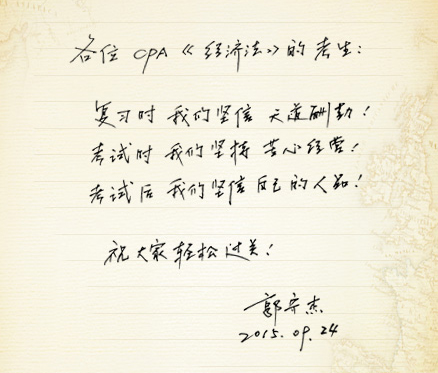 各位 CPA《经济法》的考生：
复习时 我们坚信 天道酬勤！
考试时 我们坚持 苦心经营！
考试后 我们坚信 自己的人品！
祝大家轻松过关！
郭守杰
2015.09.24